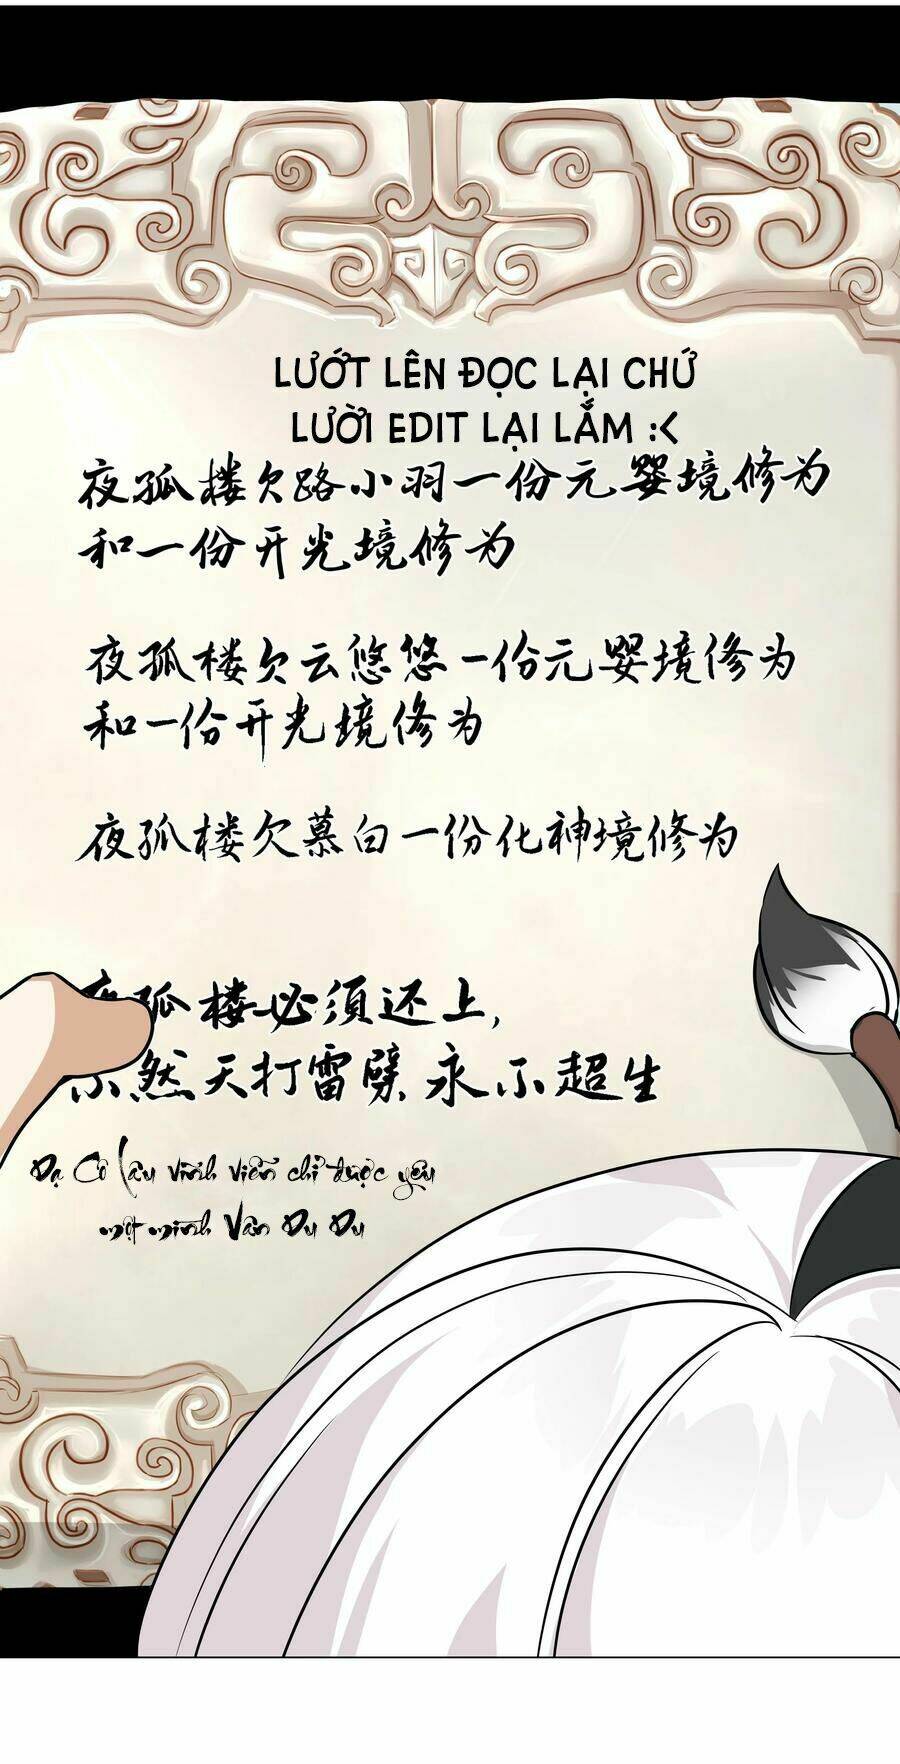 LƯỚT LÊN ĐỌC LẠI CHỨ
LƯỜI EDIT LẠI LẮM :<
夜孤楼欠路小羽一份元婴境修为
和一份开光境修为
夜孤楼欠云悠悠一份元婴境修为
和一份开光境修为
夜孤楼欠慕白一份化神境修为
夜孤楼必须还上,
不然天打雷劈永不超生
Dạ Cô Lâu vĩnh viễn chỉ được yêu
một mình Vân Du Du